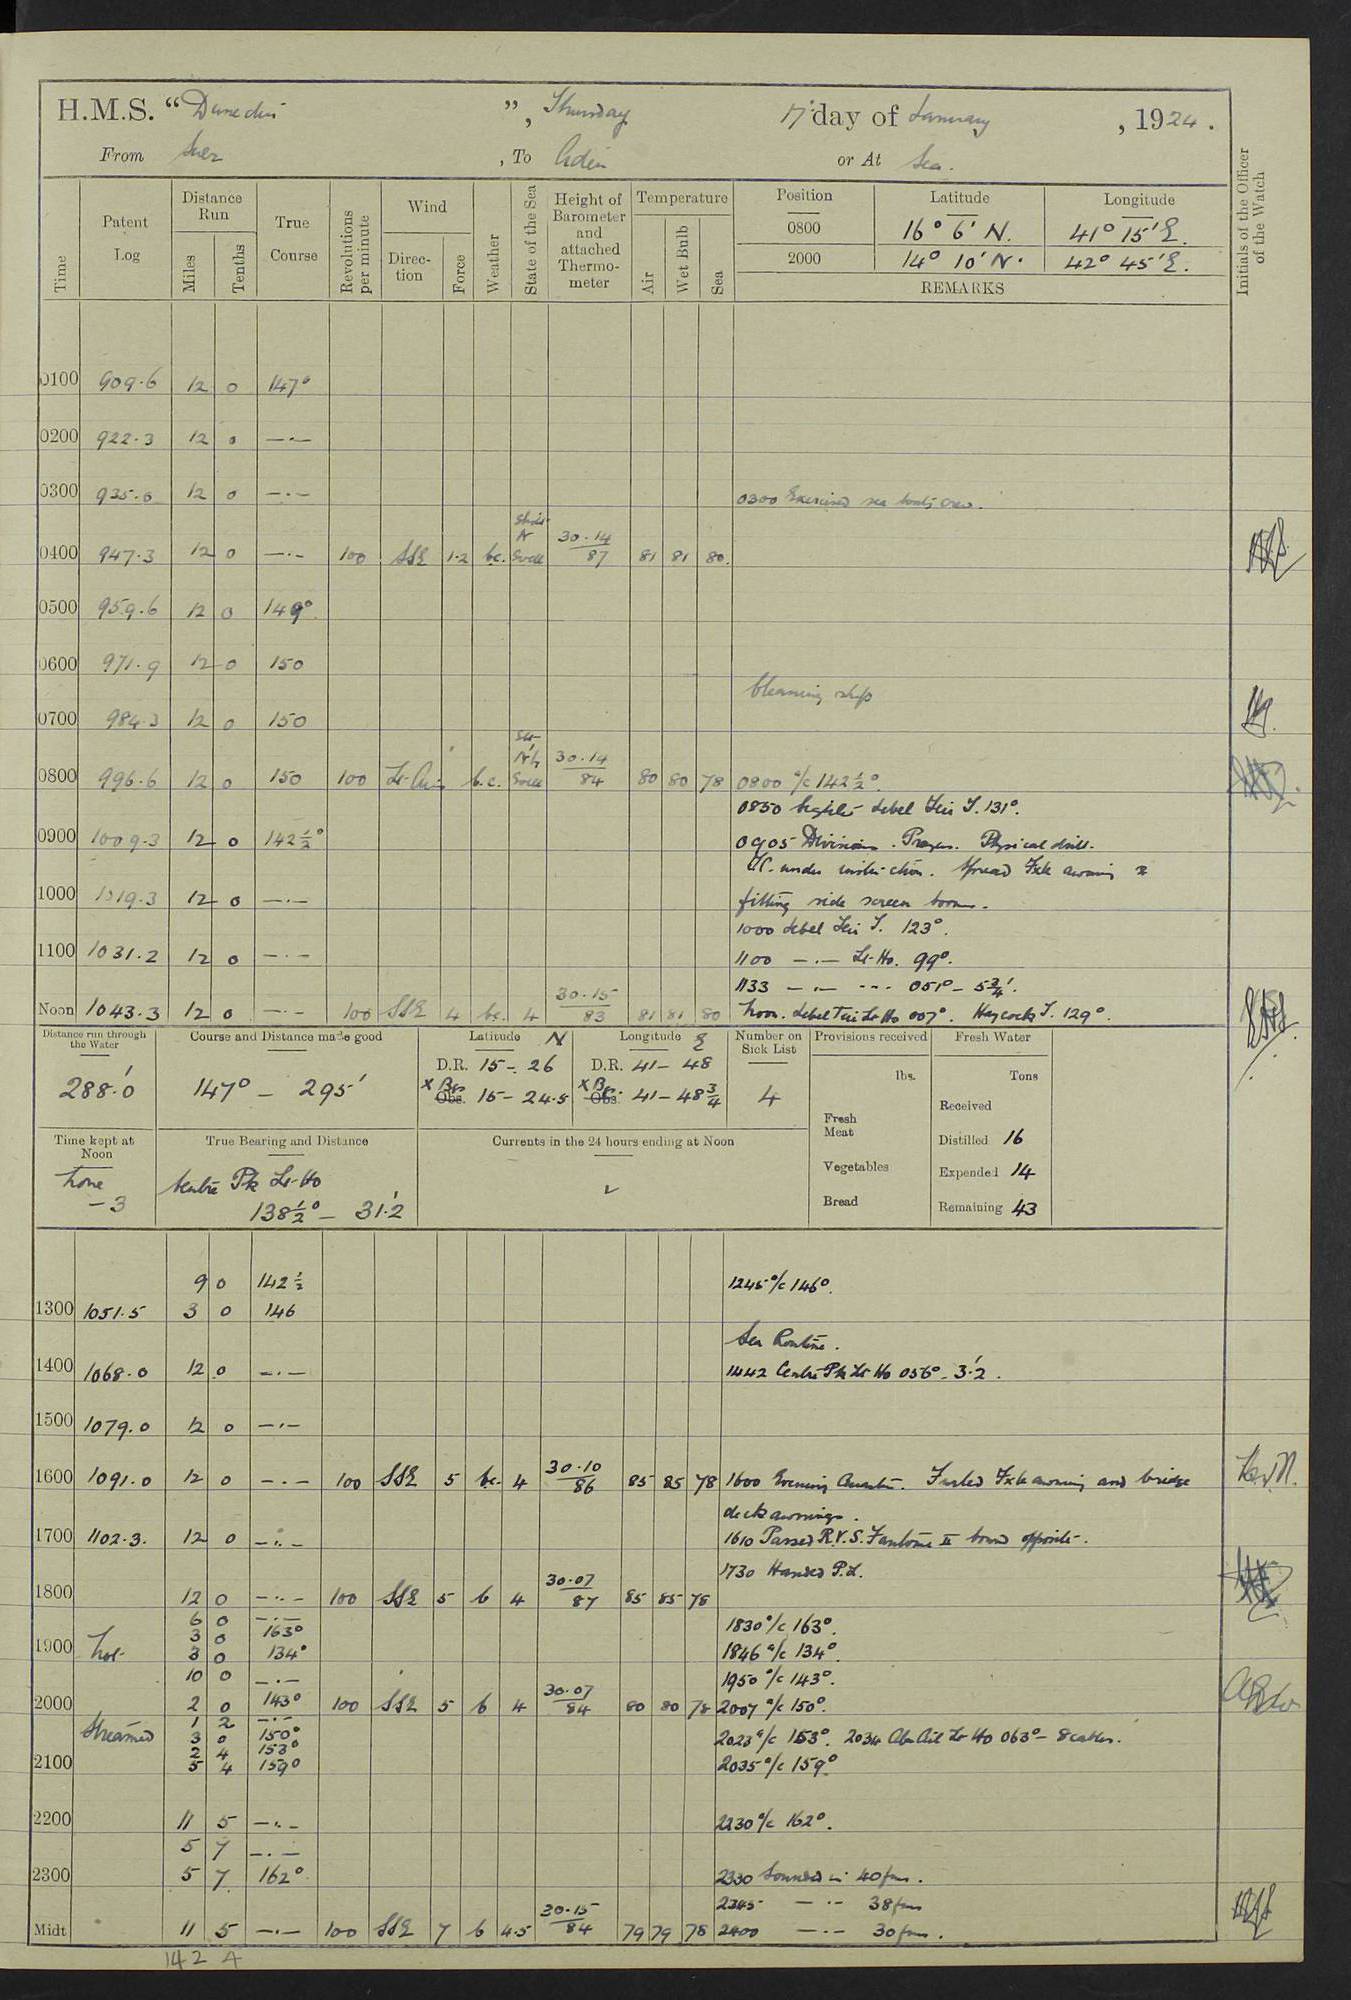 H.M.S. "Dunedin", Thursday 17th day of January, 1924.
From Suez, To Aden or At Sea.
Time
Patent Log
Distance Run
Miles
Tenths
True Course
Revolutions per minute
Wind
Direction
Force
Weather
State of the Sea
Height of Barometer and attached Thermometer
Temperature
Air
Wet Bulb
Sea
Position Latitude Longitude
0800 16° 6' N. 41° 15' E.
2000 14° 10' N. 42° 45' E.
REMARKS
Initials of the Officer of the Watch
0100 909.6 12 0 147°
0200 922.3 12 0 —·—
0300 935.0 12 0 —·— 0300 Exercised sea boats crew.
0400 947.3 12 0 —·— 100 SSE 1.2 bc. Swell 30.14 87 81 81 80.
0500 959.6 12 0 149°
0600 971.9 12 0 150
Cleaning ship
0700 984.3 12 0 150
0800 996.6 12 0 150 100 Lt Airs b.c. Swell 30.14 84 80 80 78 0800 a/c 142½°.
0850 Sighted Jebel Teir T. 131°.
0900 1009.3 12 0 142½° 0905 Divisions. Prayers. Physical drill.
under instruction. Spread Fxle awning &
1000 1019.3 12 0 —·— fitting side screen booms.
1000 Jebel Teir T. 123°.
1100 1031.2 12 0 —·— 1100 —·— Lt-Ho. 99°.
1133 —·— --- 051° - 5¾'.
Noon 1043.3 12 0 —·— 100 SSE 4 bc. 4 30.15 83 81 81 80 Noon. Jebel Teir Lt Ho 007°. Haycocks T. 129°.
Distance run through the Water
288.'0
Course and Distance made good
147° — 295'
Latitude N
D.R. 15 - 26
X Bgs Obs. 15 - 24.5
Longitude E
D.R. 41 - 48
X Bgs Obs. 41 - 48¾
Number on Sick List
4
Provisions received
lbs.
Fresh Meat
Vegetables
Bread
Fresh Water
Tons
Received
Distilled 16
Expended 14
Remaining 43
Time kept at Noon
Zone - 3
True Bearing and Distance
Centre Pk Lt-Ho
138½° - 31.'2
Currents in the 24 hours ending at Noon
9 0 142½ 1245 a/c 146°.
1300 1051.5 3 0 146
Sea Routine.
1400 1068.0 12 0 —·— 1442 Centre Pk Lt Ho 056° - 3.'2.
1500 1079.0 12 0 —·—
1600 1091.0 12 0 —·— 100 SSE 5 bc. 4 30.10 86 85 85 78 1600 Evening Quarters. Furled Fxle awning and bridge
deck awnings.
1700 1102.3. 12 0 —·— 1610 Passed R.Y.S. Fantome II bound opposite.
1730 Handed P.L.
1800 12 0 —·— 100 SSE 5 b 4 30.07 87 85 85 78
6 0 —·—
3 0 163° 1830 a/c 163°.
1900 hot 3 0 134° 1846 a/c 134°.
10 0 —·— 1950 a/c 143°.
2000 2 0 143° 100 SSE 5 b 4 30.07 84 80 80 78 2007 a/c 150°.
1 2 —·—
Streamed 3 0 150° 2023 a/c 153°. 2034 Abu Ail Lt Ho 063° - 8 cables.
2 4 153°
2100 5 4 159° 2035 a/c 159°
2200 11 5 —·— 2230 a/c 162°.
5 7 —·—
2300 5 7 162° 2330 Sounded in 40 fms.
2345 —·— 38 fms
Midt 11 5 —·— 100 SSE 7 b 4.5 30.15 84 79 79 78 2400 —·— 30 fms.
142 4